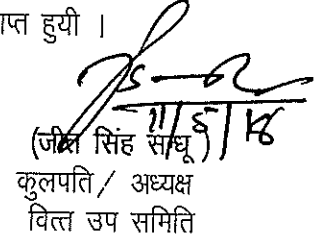 प्त हुयी ।
11/6/18
(जीत सिंह संधू)
कुलपति / अध्यक्ष
वित्त उप समिति